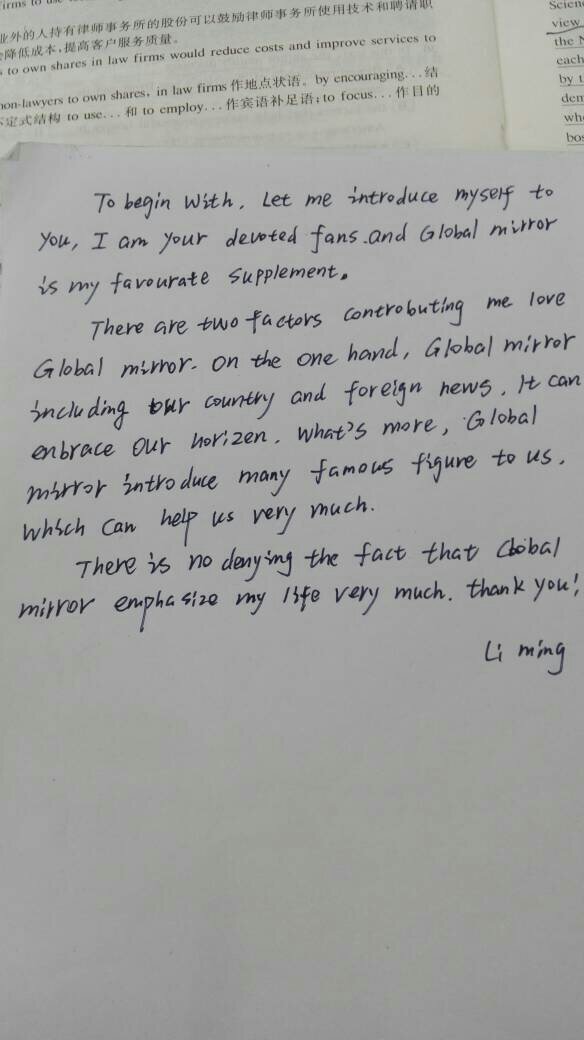 irms to use
业外的人持有律师事务所的股份可以鼓励律师事务所使用技术和聘请职
降低成本,提高客户服务质量。
s to own shares in law firms would reduce costs and improve services to
non-lawyers to own shares, in law firms 作地点状语。by encouraging...结
不定式结构 to use...和 to employ...作宾语补足语;to focus...作目的
Scien
view
the N
each
by t
den
who
bos
To begin with, Let me introduce myself to
you, I am your devoted fans.and Global mirror
is my favourate supplement.
There are two factors controbuting me love
Global mirror. on the one hand, Global mirror
including our country and foreign news. It can
enbrace our horizen. What's more, Global
mirror introduce many famous figure to us.
which can help us very much.
There is no denying the fact that Global
mirror emphasize my life very much. thank you!
Li ming